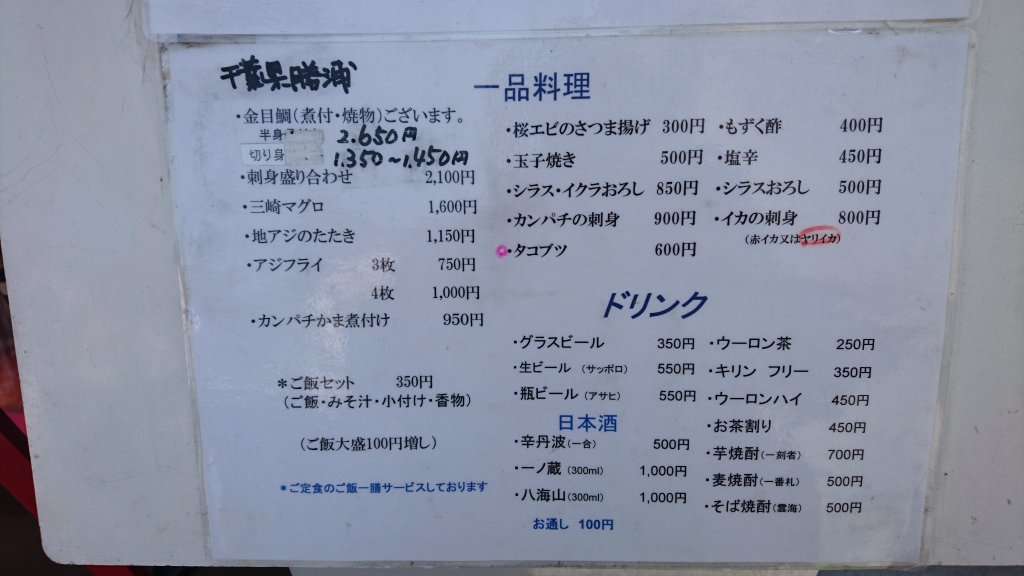 千葉県勝浦
一品料理
・金目鯛(煮付・焼物)ございます。
半身 2.650円
切り身 1.350〜1.450円
・刺身盛り合わせ 2,100円
・三崎マグロ 1,600円
・地アジのたたき 1,150円
・アジフライ 3枚 750円
4枚 1,000円
・カンパチかま煮付け 950円
＊ご飯セット 350円
(ご飯・みそ汁・小付け・香物)
(ご飯大盛100円増し)
＊ご定食のご飯一膳サービスしております
・桜エビのさつま揚げ 300円
・玉子焼き 500円
・シラス・イクラおろし 850円
・カンパチの刺身 900円
・タコブツ 600円
・もずく酢 400円
・塩辛 450円
・シラスおろし 500円
・イカの刺身 800円
(赤イカ又はヤリイカ)
ドリンク
・グラスビール 350円
・生ビール (サッポロ) 550円
・瓶ビール (アサヒ) 550円
日本酒
・辛丹波(一合) 500円
・一ノ蔵 (300ml) 1,000円
・八海山(300ml) 1,000円
お通し 100円
・ウーロン茶 250円
・キリン フリー 350円
・ウーロンハイ 450円
・お茶割り 450円
・芋焼酎(一刻者) 700円
・麦焼酎(一番札) 500円
・そば焼酎(雲海) 500円